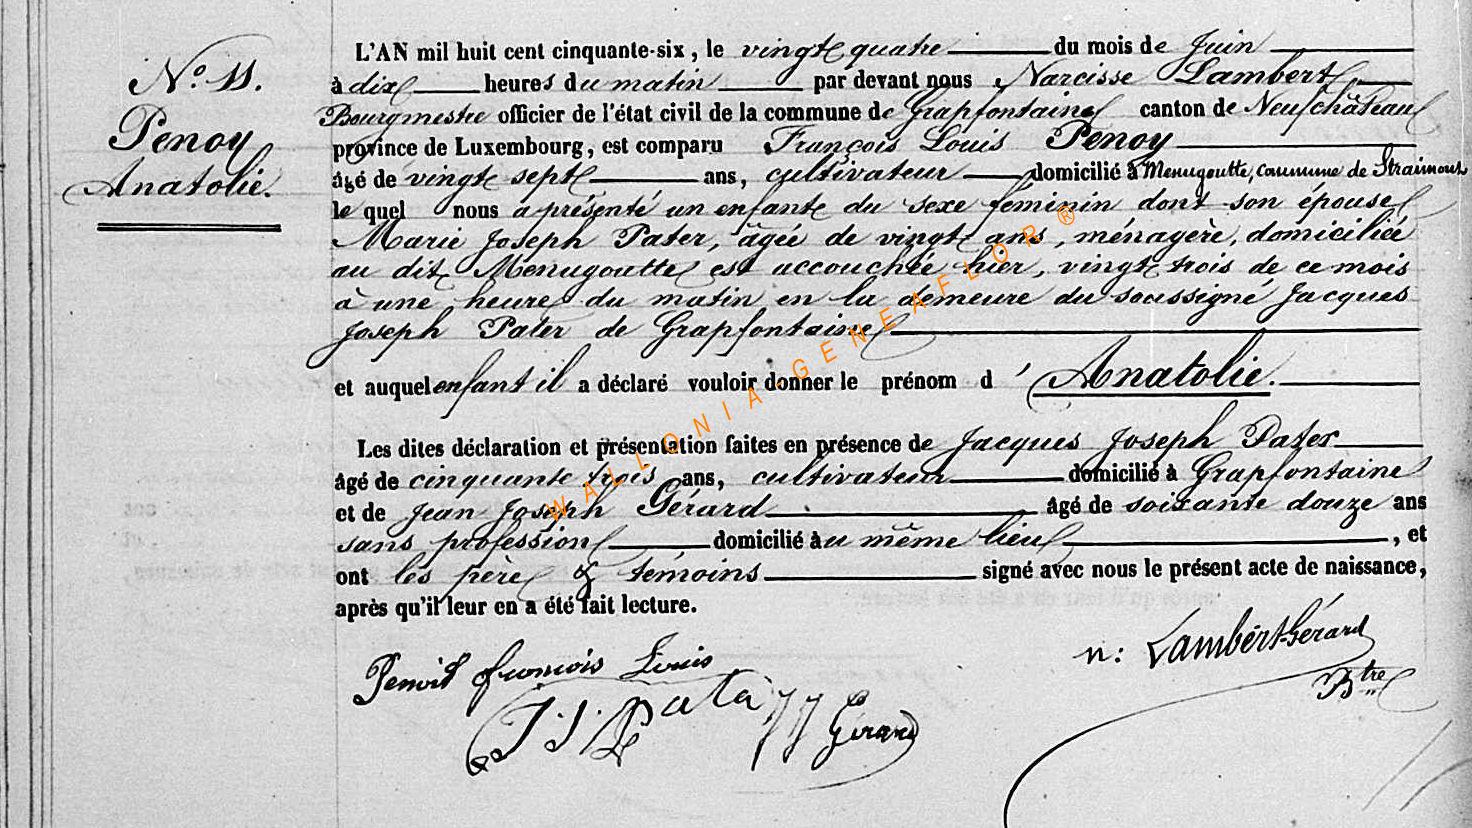 N.° 11.
Penoy
Anatolie.
L'AN mil huit cent cinquante-six, le vingt quatre du mois de Juin
à dix heures du matin par devant nous Narcisse Lambert
Bourgmestre officier de l'état civil de la commune de Grapfontaine canton de Neufchâteau
province de Luxembourg, est comparu François Louis Penoy
âgé de vingt sept ans, cultivateur domicilié à Menugoutte, commune de Straimont
le quel nous a présenté un enfant du sexe féminin dont son épouse
Marie Joseph Pater, âgée de vingt ans, ménagère, domiciliée
au dit Menugoutte est accouchée hier, vingt trois de ce mois
à une heure du matin en la demeure du soussigné Jacques
Joseph Pater de Grapfontaine
et auquel enfant il a déclaré vouloir donner le prénom d' Anatolie.
Les dites déclaration et présentation faites en présence de Jacques Joseph Pater
âgé de cinquante trois ans, cultivateur domicilié à Grapfontaine
et de Jean Joseph Gérard âgé de soixante douze ans
sans profession domicilié au même lieu, et
ont les père & témoins signé avec nous le présent acte de naissance,
après qu'il leur en a été fait lecture.
Penoit françois Louis
n: Lambert-Gérard
Btre
J. J. Pater
JJ Gérard
WALLONIA-GENEAFLOR ®